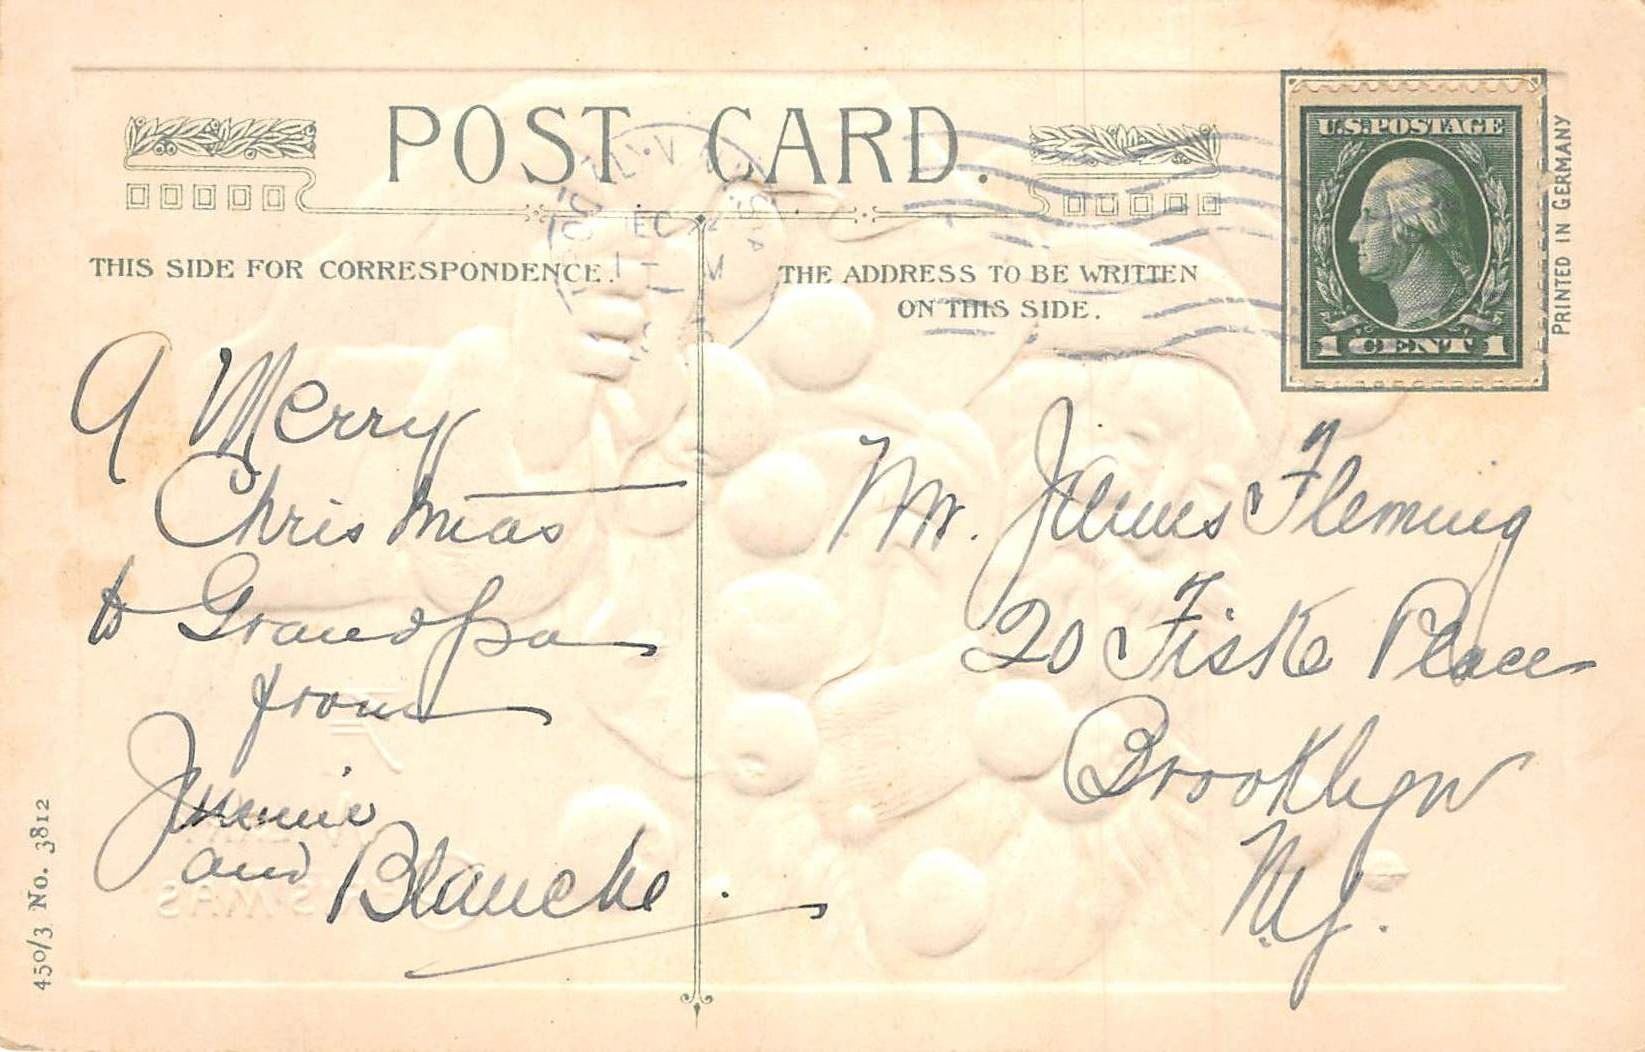 POST CARD.
THIS SIDE FOR CORRESPONDENCE.
THE ADDRESS TO BE WRITTEN
ON THIS SIDE.
U.S. POSTAGE
1 CENT 1
PRINTED IN GERMANY
A Merry
Christmas
to Grandpa
from
Jennie
and Blanche.
Mr. James Fleming
20 Fiske Place
Brooklyn
N.Y.
450/3 No. 3812